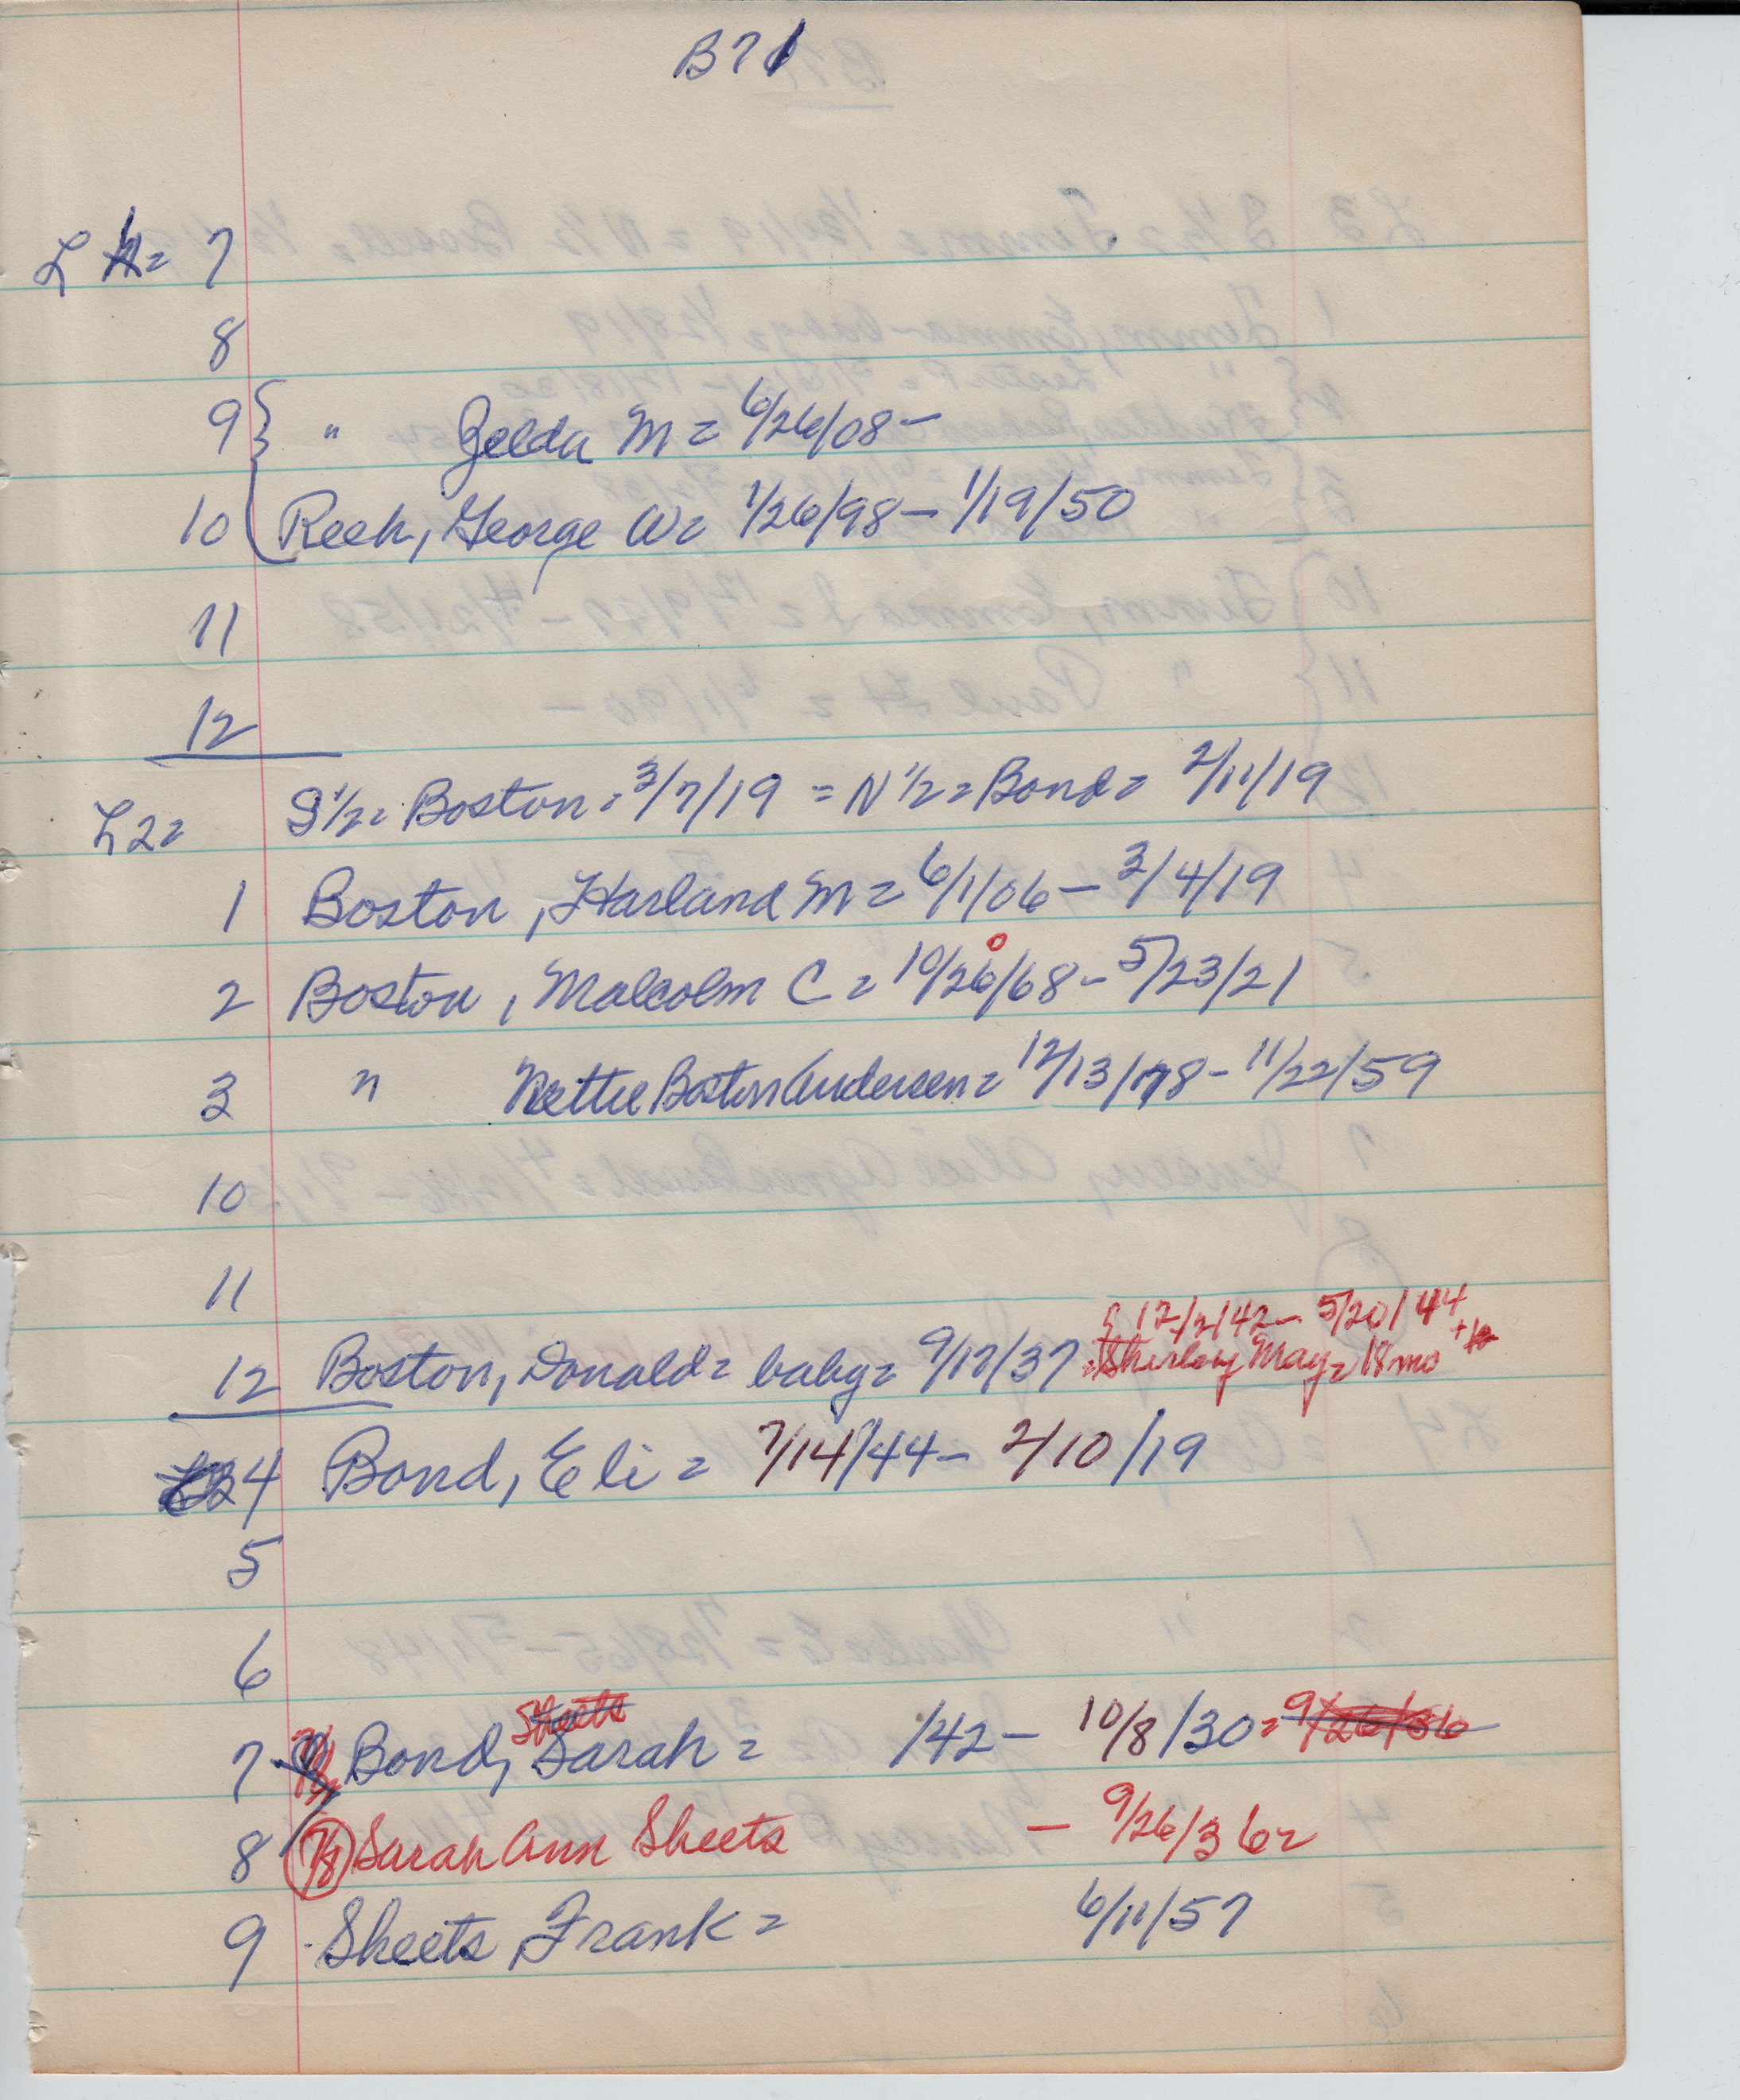 B71
L 1= 7
8
9 { " Zelda M = 6/26/08 -
10 Reeh, George W = 1/26/98 - 1/19/50
11
12
L2= S 1/2 = Boston = 3/7/19 = N 1/2 = Bond = 2/11/19
1 Boston, Harland M = 6/1/06 - 3/4/19
2 Boston, Malcolm C = 10/26/68 - 5/23/21
0
3 " Nettie Boston Andersen = 12/13/78 - 11/22/59
10
11
12/2/42 - 5/20/44
12 Boston, Donald = baby = 9/12/37 = Shirley May = 18 mo
4 Bond, Eli = 7/14/44 - 2/10/19
5
6
Sheets
7 Bond, Sarah = /42 - 10/8/30 = 9/26/36
8 7/8 Sarah Ann Sheets - 9/26/36 =
9 Sheets, Frank = 6/11/57